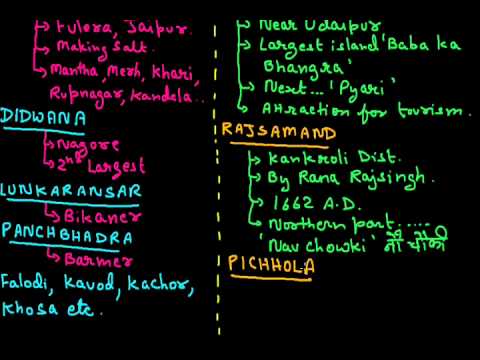 Fulera, Jaipur.
Making Salt.
Mantha, Merh, Khari,
Rupnagar, Kandela..
DIDWANA
Nagore
2nd Largest
LUNKARANSAR
Bikaner
PANCHBHADRA
Barmer
Falodi, Kavod, Kachor,
Khosa etc.
Near Udaipur
Largest island 'Baba ka
Bhangra'
Next... 'Pyari'
Attraction for tourism.
RAJSAMAND
Kankroli Dist.
By Rana Rajsingh.
1662 A.D.
Northern part.....
'Nav Chowki' नौ चौकी
PICHHOLA